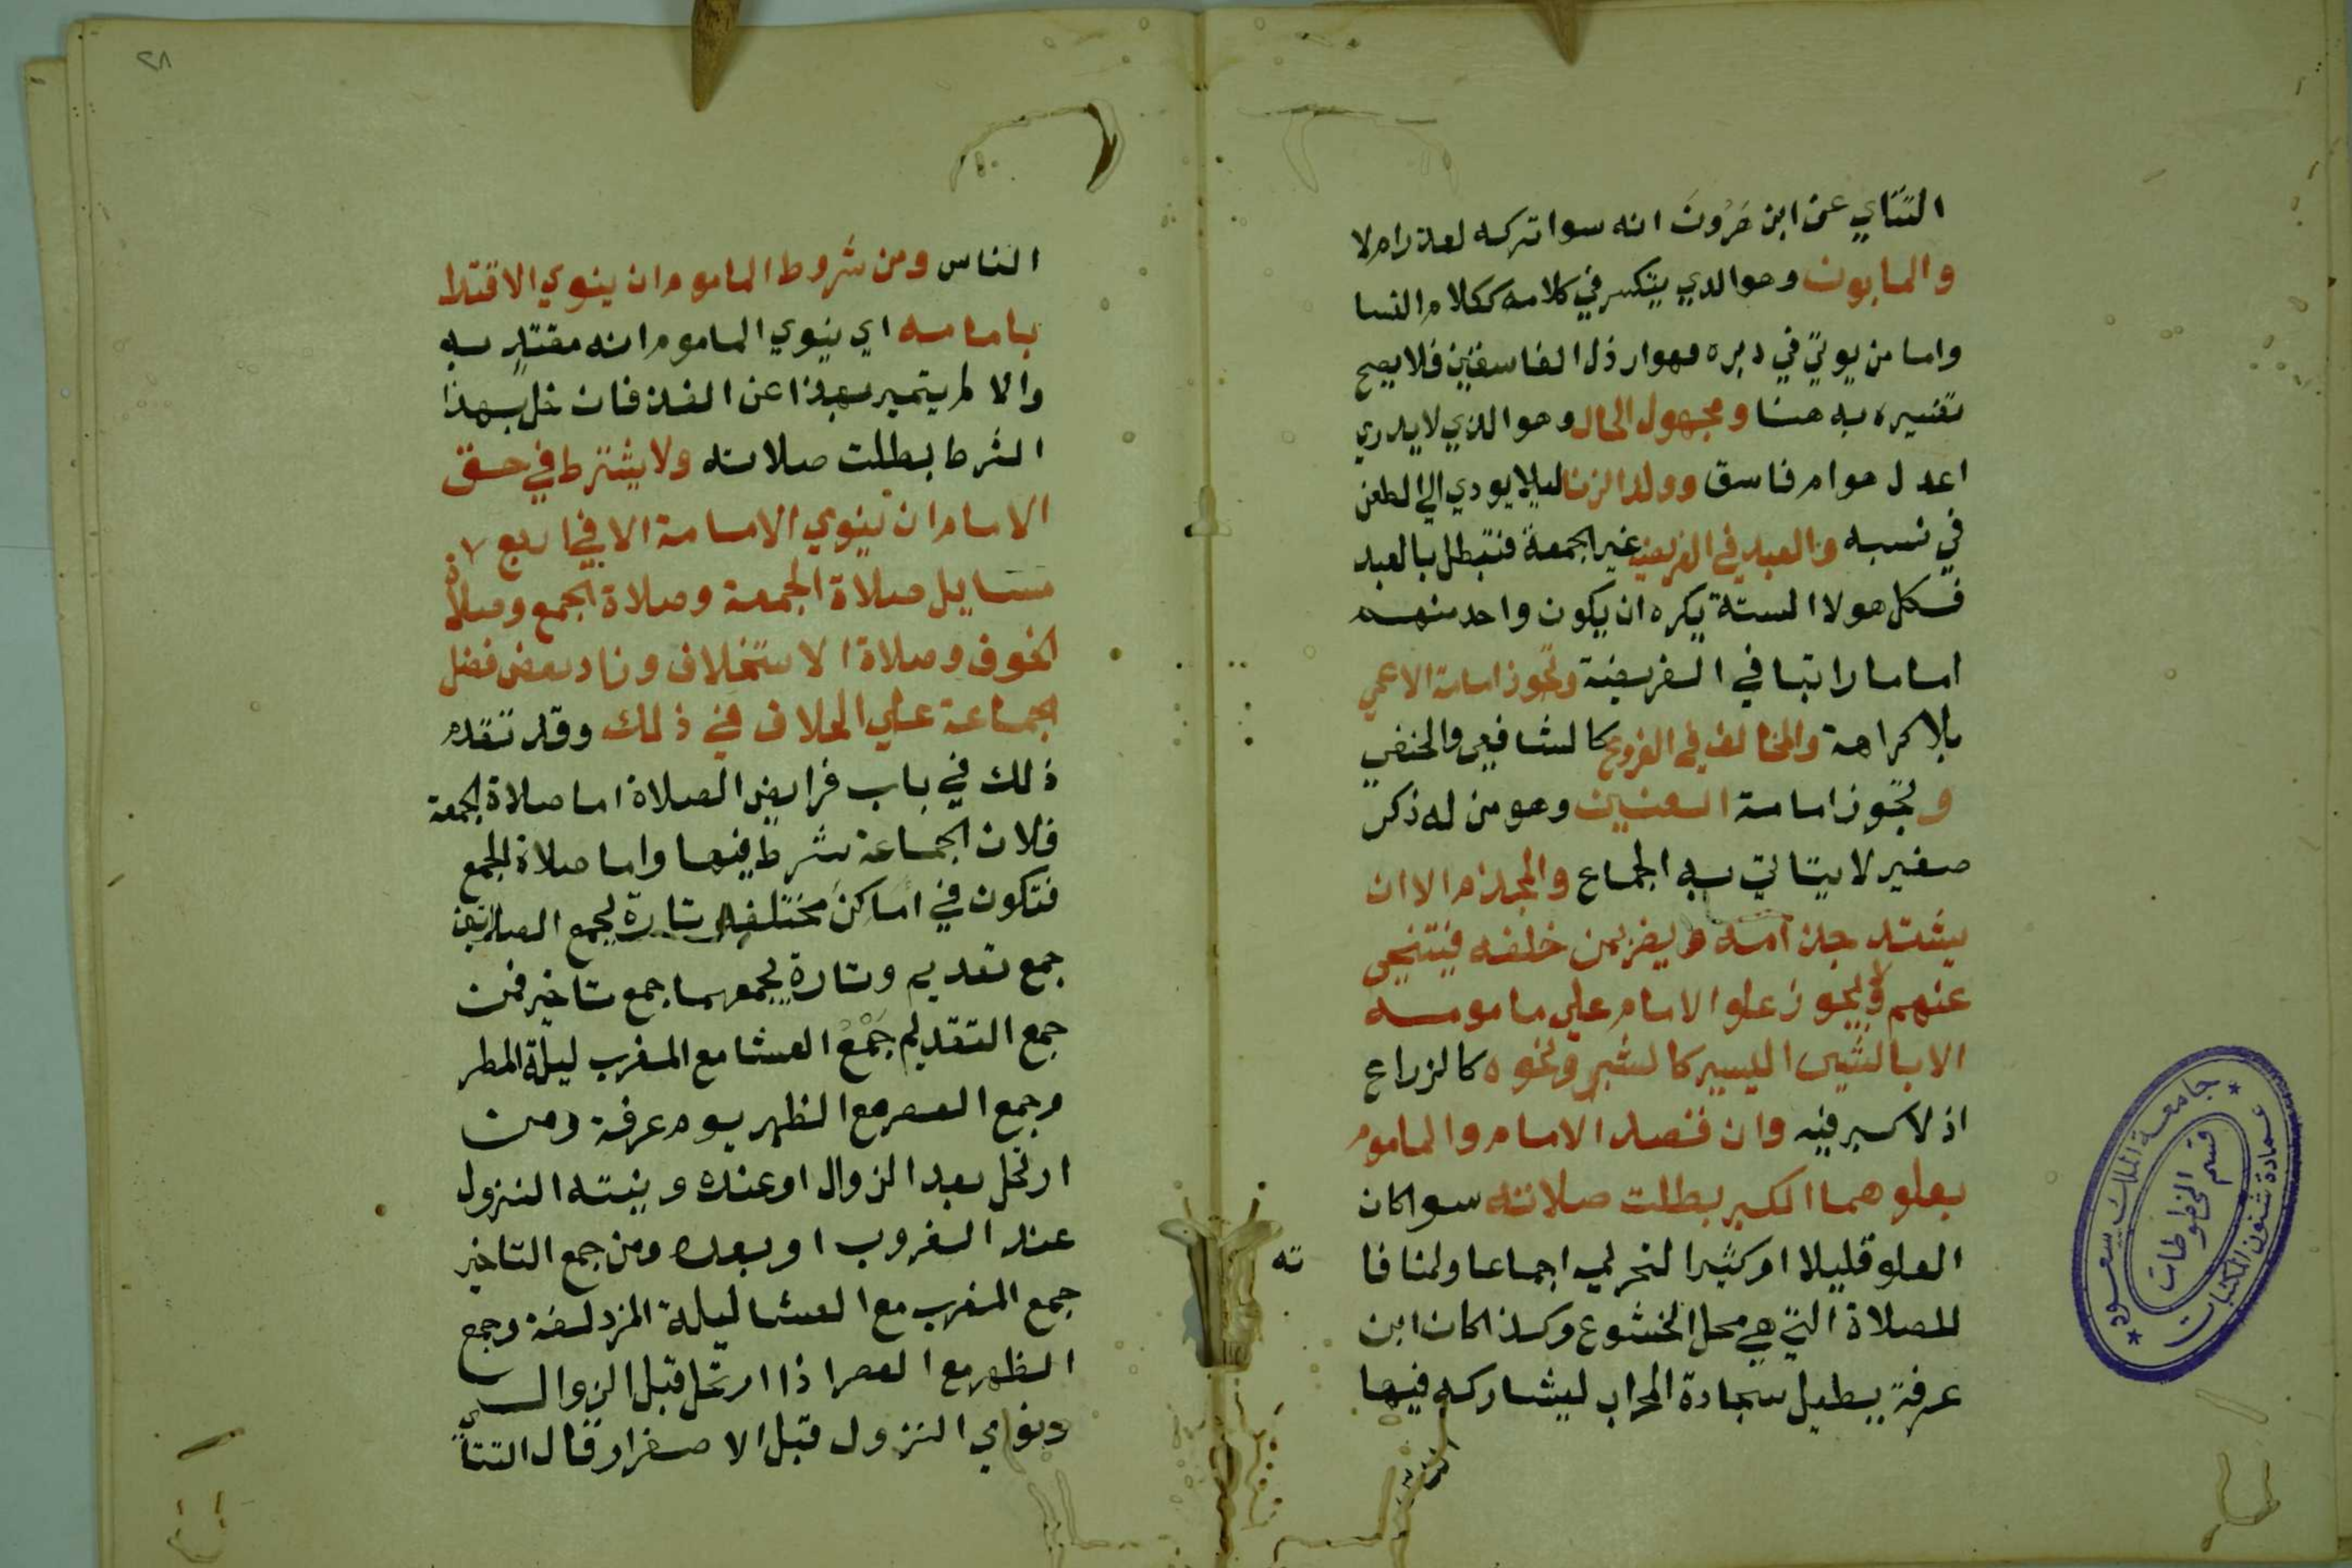 التتاي عن ابن هَرُونَ انه سوا تركه لعذر ام لا
والمابون وهو الدي يتكسر في كلامه ككلام النسا
واما من يوتي في دبره فهو ارذل الفاسقين فلا يصح
تفسيره به هنا ومجهول الحال وهو الذي لا يدري
اعدل هو ام فاسق وولد الزنا ليلا يودي الي الطعن
في نسبه والعبد في الفريضه غير الجمعة فتبطل بالعبد
فكل هولا الستة يكره ان يكون واحد منهم
اماما راتبا في الفريضة وتجوز امامة الاعمي
بلا كراهة والمخالف في الفروع كالشافعي والحنفي
وتجوز امامة العنين وهو من له ذكر
صغير لا يتاتي به الجماع والمجذم الا ان
يشتد جذامه ويضر بمن خلفه فيتنحي
عنهم ولا يجوز علو الامام علي مامومه
الا بالشي اليسير كالشبر ونحوه كالزراع
اذ لا كبر فيه وان قصد الامام والماموم
بعلوهما الكبر بطلت صلاته سوا كان
العلو قليلا او كثيرا لتحريمه اجماعا ولمنافا
ته
للصلاة التي هي محل الخشوع وكذا كان ابن
عرفة يطيل سجادة المحراب ليشاركه فيها
الناس
٢٨
الناس ومن شروط الماموم ان ينوي الاقتدا
بامامه اي ينوي الماموم انه مقتد به
والا لم يتميز بهذا عن الفذ فان خل بهذا
الشرط بطلت صلاته ولا يشترط في حق
الامام ان ينوي الامامة الا في اربع
مسايل صلاة الجمعة وصلاة الجمع وصلاة
الخوف وصلاة الاستخلاف وزاد بعض فضل
الجماعة علي الخلاف في ذلك وقد تقدم
ذلك في باب فرايض الصلاة اما صلاة الجمعة
فلان الجماعة شرط فيها واما صلاة الجمع
فتكون في اماكن مختلفه تارة يجمع الصلاتين
جمع تقديم وتارة يجمعهما جمع تاخير فمن
جمع التقديم جَمْعُ العشا مع المغرب ليلة المطر
وجمع العصر مع الظهر يوم عرفة ومن
ارتحل بعد الزوال او عنده ونيته النزول
عند الغروب او بعده ومن جمع التاخير
جمع المغرب مع العشا ليلة المزدلفة وجمع
الظهر مع العصر اذا ارتحل قبل الزوال
ونوي النزول قبل الاصفرار قال التتا
جامعة الملك سعود
عمادة شئون المكتبات
قسم المخطوطات